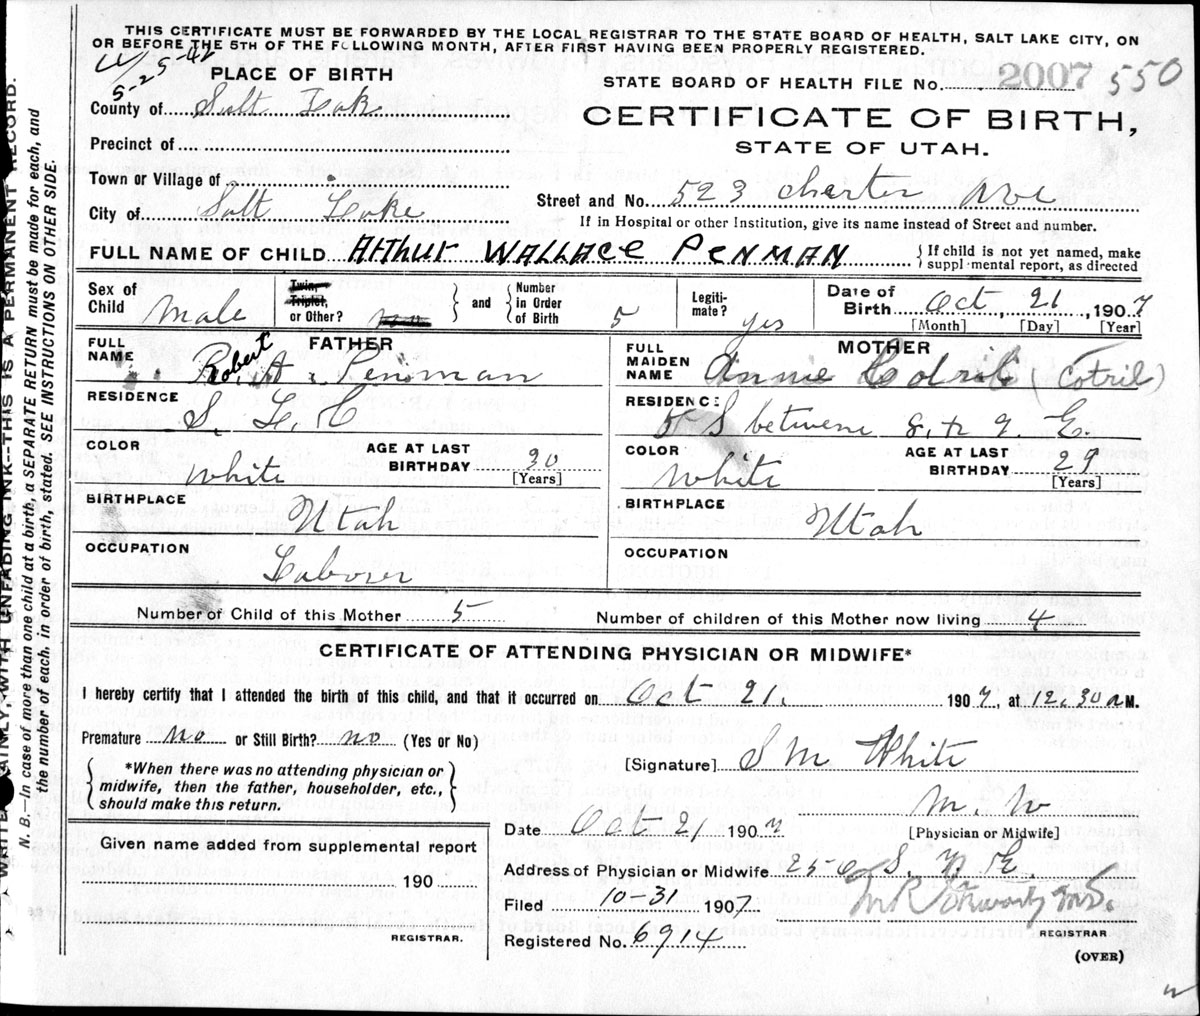 THIS CERTIFICATE MUST BE FORWARDED BY THE LOCAL REGISTRAR TO THE STATE BOARD OF HEALTH, SALT LAKE CITY, ON
OR BEFORE THE 5TH OF THE FOLLOWING MONTH, AFTER FIRST HAVING BEEN PROPERLY REGISTERED.
5-25-42
PLACE OF BIRTH
STATE BOARD OF HEALTH FILE No. 2007 550
County of Salt Lake
CERTIFICATE OF BIRTH,
STATE OF UTAH.
Precinct of
Town or Village of
Street and No. 523 Charter Ave
City of Salt Lake
If in Hospital or other Institution, give its name instead of Street and number.
FULL NAME OF CHILD Arthur WALLACE PENMAN
{If child is not yet named, make
suppl mental report, as directed
Sex of Child Male
Twin, Triplet, or Other?
and
Number in Order of Birth 5
Legiti-mate? yes
Date of Birth Oct 21, 1907
[Month] [Day] [Year]
FATHER
FULL NAME Robert Penman
RESIDENCE S. L. C
COLOR White
AGE AT LAST BIRTHDAY 30
[Years]
BIRTHPLACE Utah
OCCUPATION Laborer
MOTHER
FULL MAIDEN NAME Annie (Cotril)
RESIDENCE 5 S betwene 8. & 9. E.
COLOR White
AGE AT LAST BIRTHDAY 29
[Years]
BIRTHPLACE Utah
OCCUPATION
Number of Child of this Mother 5
Number of children of this Mother now living 4
CERTIFICATE OF ATTENDING PHYSICIAN OR MIDWIFE*
I hereby certify that I attended the birth of this child, and that it occurred on Oct 21. 1907, at 12.30 a M.
Premature no or Still Birth? no (Yes or No)
[Signature] S M White
*When there was no attending physician or
midwife, then the father, householder, etc.,
should make this return.
M. W
[Physician or Midwife]
Date Oct 21 1907
Given name added from supplemental report
190
REGISTRAR.
Address of Physician or Midwife 256 S. 7 E.
Filed 10-31 1907
REGISTRAR
Registered No. 6914
(OVER)
WITH UNFADING INK--THIS IS A PERMANENT RECORD.
N. B.—In case of more than one child at a birth, a SEPARATE RETURN must be made for each, and
the number of each. in order of birth, stated. SEE INSTRUCTIONS ON OTHER SIDE.